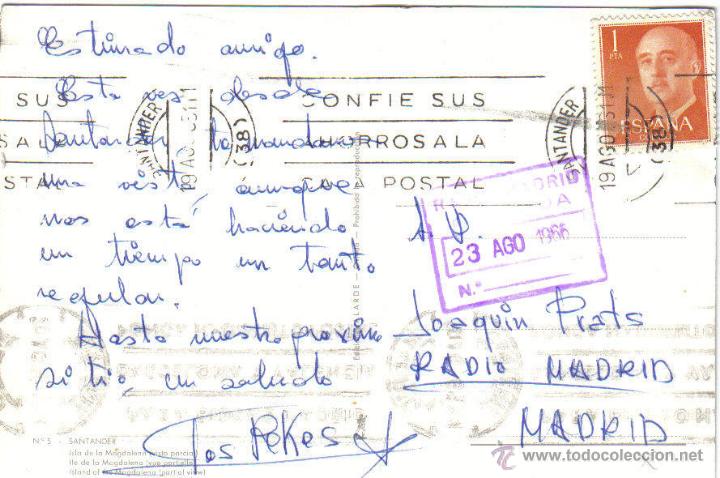 Estimado amigo.
Esta ves desde
Santander le mandamos
una vista, aunque
nos está haciendo
un tiempo un tanto
regular.
Hasta nuestro proximo
sitio, un saludo
Los Pekes
CONFIE SUS
AHORROS A LA
CAJA POSTAL
SUS
SALA
STAL
SANTANDER
19 AGO
(38)
SANTANDER
19 AGO
(38)
1
PTA
ESPAÑA
23 AGO 1966
N.º
A. D.
Joaquin Prats
RADIO MADRID
MADRID
Prohibida la reproducción
N.º 5 - SANTANDER
Isla de la Magdalena (vista parcial)
Ile de la Magdalena (vue partielle)
Island of the Magdalena (part al view)
© www.todocoleccion.net